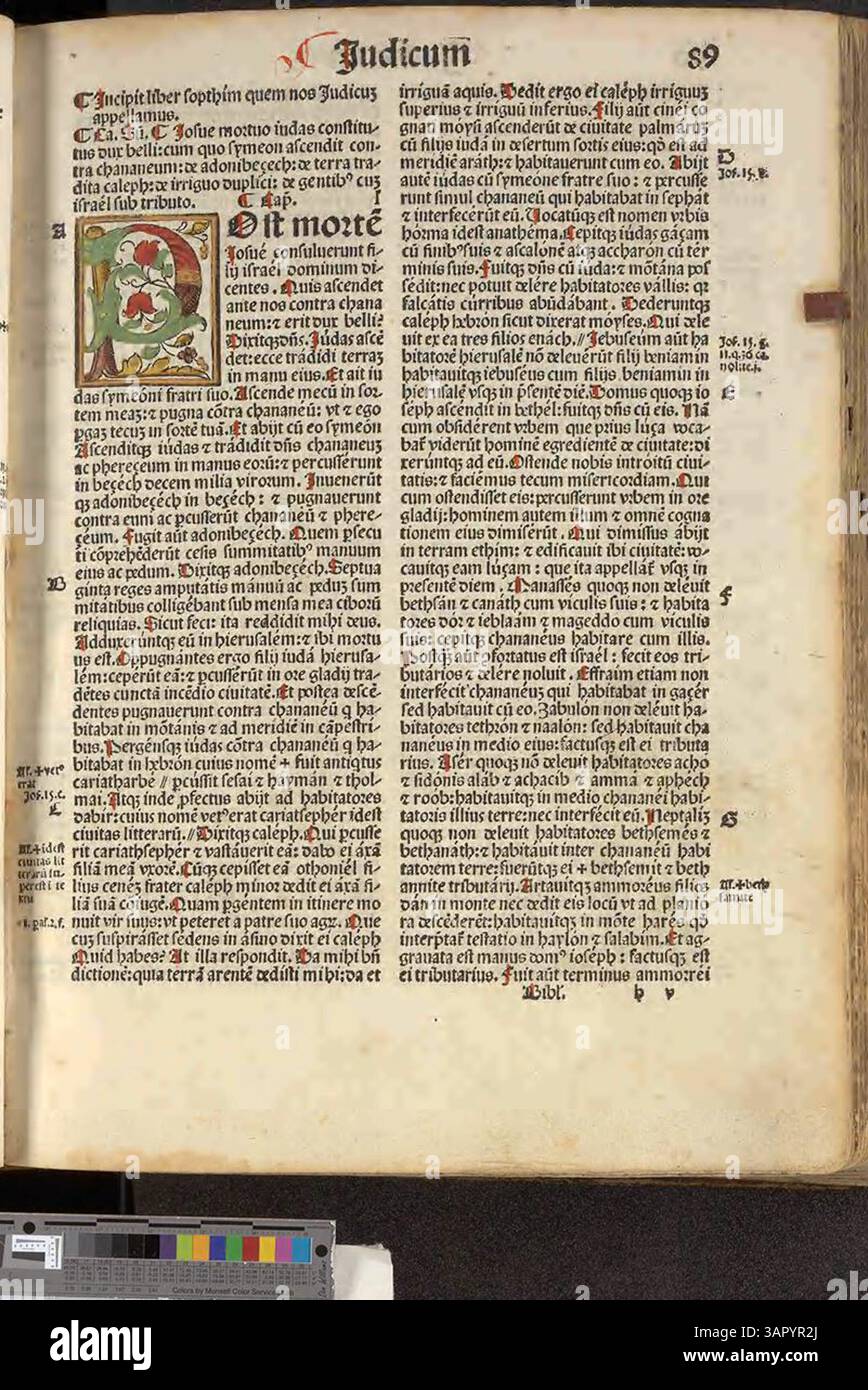 Judicum 89
¶ Incipit liber sopthim quem nos Judicuʒ
appellamus.
¶ Ca. Sū. ¶ Josue mortuo iudas constitu-
tus dux belli: cum quo symeon ascendit con-
tra chananeum: de adonibeçech: de terra tra-
dita caleph: de irriguo duplici: de gentibꝰ cuʒ
israēl sub tributo. ¶ Cap. I
A
Post mortē
Josué consuluerunt fi-
lij israel dominum di-
centes. Quis ascendet
ante nos contra chana
neum: ⁊ erit dux belli?
Dixitqʒ dñs. Judas ascē
det: ecce tradidi terraʒ
in manu eius. Et ait iu
das symeóni fratri suo. Ascende mecū in sor-
tem meaʒ: ⁊ pugna cōtra chananeū: vt ⁊ ego
ꝑgaʒ tecuʒ in sortē tuā. Et abijt cū eo symeón
Ascenditqʒ iúdas ⁊ trádidit dñs chananeuʒ
ac phereçeum in manus eorū: ⁊ percusserunt
in beçéch decem milia virorum. Inuenerūt
qʒ adonibeçéch in beçéch: ⁊ pugnauerunt
contra eum ac ꝑcusserūt chananéū ⁊ phere-
çéum. Fugit aūt adonibeçéch. Quem ꝑsecu
ti cōprehēderūt cesis summitatibꝰ manuum
eius ac pedum. Dixitqʒ adonibeçéch. Septua
B
ginta reges amputátis mánuū ac peduʒ sum
mitátibus colligébant sub mensa mea ciborū
reliquias. Sicut feci: ita reddidit mihi deus.
Adduxerúntqʒ eū in hierusalém: ⁊ ibi mortu
us est. Oppugnántes ergo filij iudá hierusa-
lém: cepérūt eā: ⁊ ꝑcussérūt in ore gladij tra-
détes cunctā incédio ciuitatē. Et postea descē-
dentes pugnauerunt contra chananéū q̄ ha-
bitabat in mōtánis ⁊ ad meridiē in cāpestri-
bus. Pergénsqʒ iúdas cōtra chananéū q̄ ha-
bitabat in hebrón cuius nomē + fuit antiqtus
cariatharbé // ꝑcússit sesai ⁊ haymán ⁊ thol-
mai. Atqʒ inde ꝓfectus abijt ad habitatores
dabir: cuius nomē veꝰerat cariatsépher idest
ciuitas litterarū. // Dixitqʒ caléph. Qui ꝑcusse
rit cariathsépher ⁊ vastáuerit eā: dabo ei áxā
filiā meā vxorē. Cūqʒ cepisset eam othoniél fi-
lius cenéʒ frater caléph minor dedit ei áxā fi-
liā suā cōiugē. Quam ꝑgéntem in itinere mo
nuit vir suus: vt péteret a patre suo agꝝ. Que
cuʒ suspirásset sedens in ásino dixit ei caléph
Quid habes? At illa respondit. Da mihi bñ
dictionē: quia terrā arentē dedisti mihi: da et
M. + veꝰ
erat
Jos. 15. c.
C
M. + idest
ciuitas lit
terarū
1. par. 2. f.
irriguā aquis. Dedit ergo ei caléph irriguuʒ
superius ⁊ irriguū inferius. Filij aūt cinéi co
gnati móysi ascenderūt de ciuitate palmáruʒ
cū filijs iudá in desertum sortis eius: qd̄ en̄ ad
meridiē aráth: ⁊ habitauerunt cum eo. Abijt
autē iúdas cū symeóne fratre suo: ⁊ percusse
runt simul chananeū qui habitabat in sephát
⁊ interfecérūt eū. Uocatūqʒ est nomen vrbis
hórma idest anathéma. Cepitqʒ iúdas gáçam
cū finibꝰ suis ⁊ ascalónē atqʒ accharón cū tér
minis suis. Fuitqʒ dñs cū iuda: ⁊ mōtána pos
sédit: nec pótuit delére habitatores vállis: qr
falcátis cúrribus abūdábant. Dederuntqʒ
caléph hebrón sicut dixerat móyses. Qui dele
uit ex ea tres filios enách. // Jebuseūm aūt ha
bitatorē hierusalē nō deleuérūt filij beniamin
habitauitqʒ iebuséus cum filijs beniamin in
hierusalē vsqʒ in p̄séntē diē. Domus quoqʒ io
séph ascéndit in bethél: fuitqʒ dñs cū eis. Nā
cum obsidérent vrbem que prius lúça voca-
bat viderūt hominē egredientē de ciuitate: di
xerúntqʒ ad eū. Ostende nobis introítū ciui-
tatis: ⁊ faciémus tecum misericordiam. Qui
cum ostendisset eis: percusserunt vrbem in ore
gladij: hominem autem illum ⁊ omnē cogna
tionem eius dimisérūt. Qui dimissus ábijt
in terram ethím: ⁊ edificauit ibi ciuitatē: vo-
cauitqʒ eam lúçam: que ita appellat̄ vsqʒ in
presentē diem. Manásses quoqʒ non deléuit
bethsán ⁊ canáth cum viculis suis: ⁊ habita
tores dór: ⁊ ieblaám ⁊ mageddo cum viculis
suis: cepitqʒ chananéus habitare cum illis.
Postqʒ aūt ꝯfortatus est israel: fecit eos tri-
butários ⁊ delére noluit. Effraim etiam non
interfécit chananéuʒ qui habitabat in gaçér
sed habitauit cū eo. Zabulón non deléuit ha-
bitatores tethrón ⁊ naalón: sed habitauit cha
nanéus in medio eius: factusqʒ est ei tributa
rius. Asér quoqʒ nō deleuit habitatores achó
⁊ sidónis aláb ⁊ achacib ⁊ ammá ⁊ aphéch
⁊ roób: habitauitqʒ in medio chananéi habi-
tatoris illius terre: nec interfécit eū. Neptaliʒ
quoqʒ non deleuit habitatores bethsemés ⁊
bethanáth: ⁊ habitáuit inter chananéū habi
tatorem terre: fuerútqʒ ei + bethsemit ⁊ beth
annite tributárij. Artauitqʒ ammoréus filios
dán in monte nec dedit eis locū vt ad planio
ra descēderēt: habitauitqʒ in mōte hares qd̄
interptat̄ testatio in haylón ⁊ salabim. Et ag-
grauata est manus domꝰ ioséph: factusqʒ est
ei tributarius. Fuit aūt terminus ammorréi
D
Jos. 15. g.
E
F
G
M. + beth
samite
Bibl. h v
alamy
Image ID: 3APYR2J
www.alamy.com